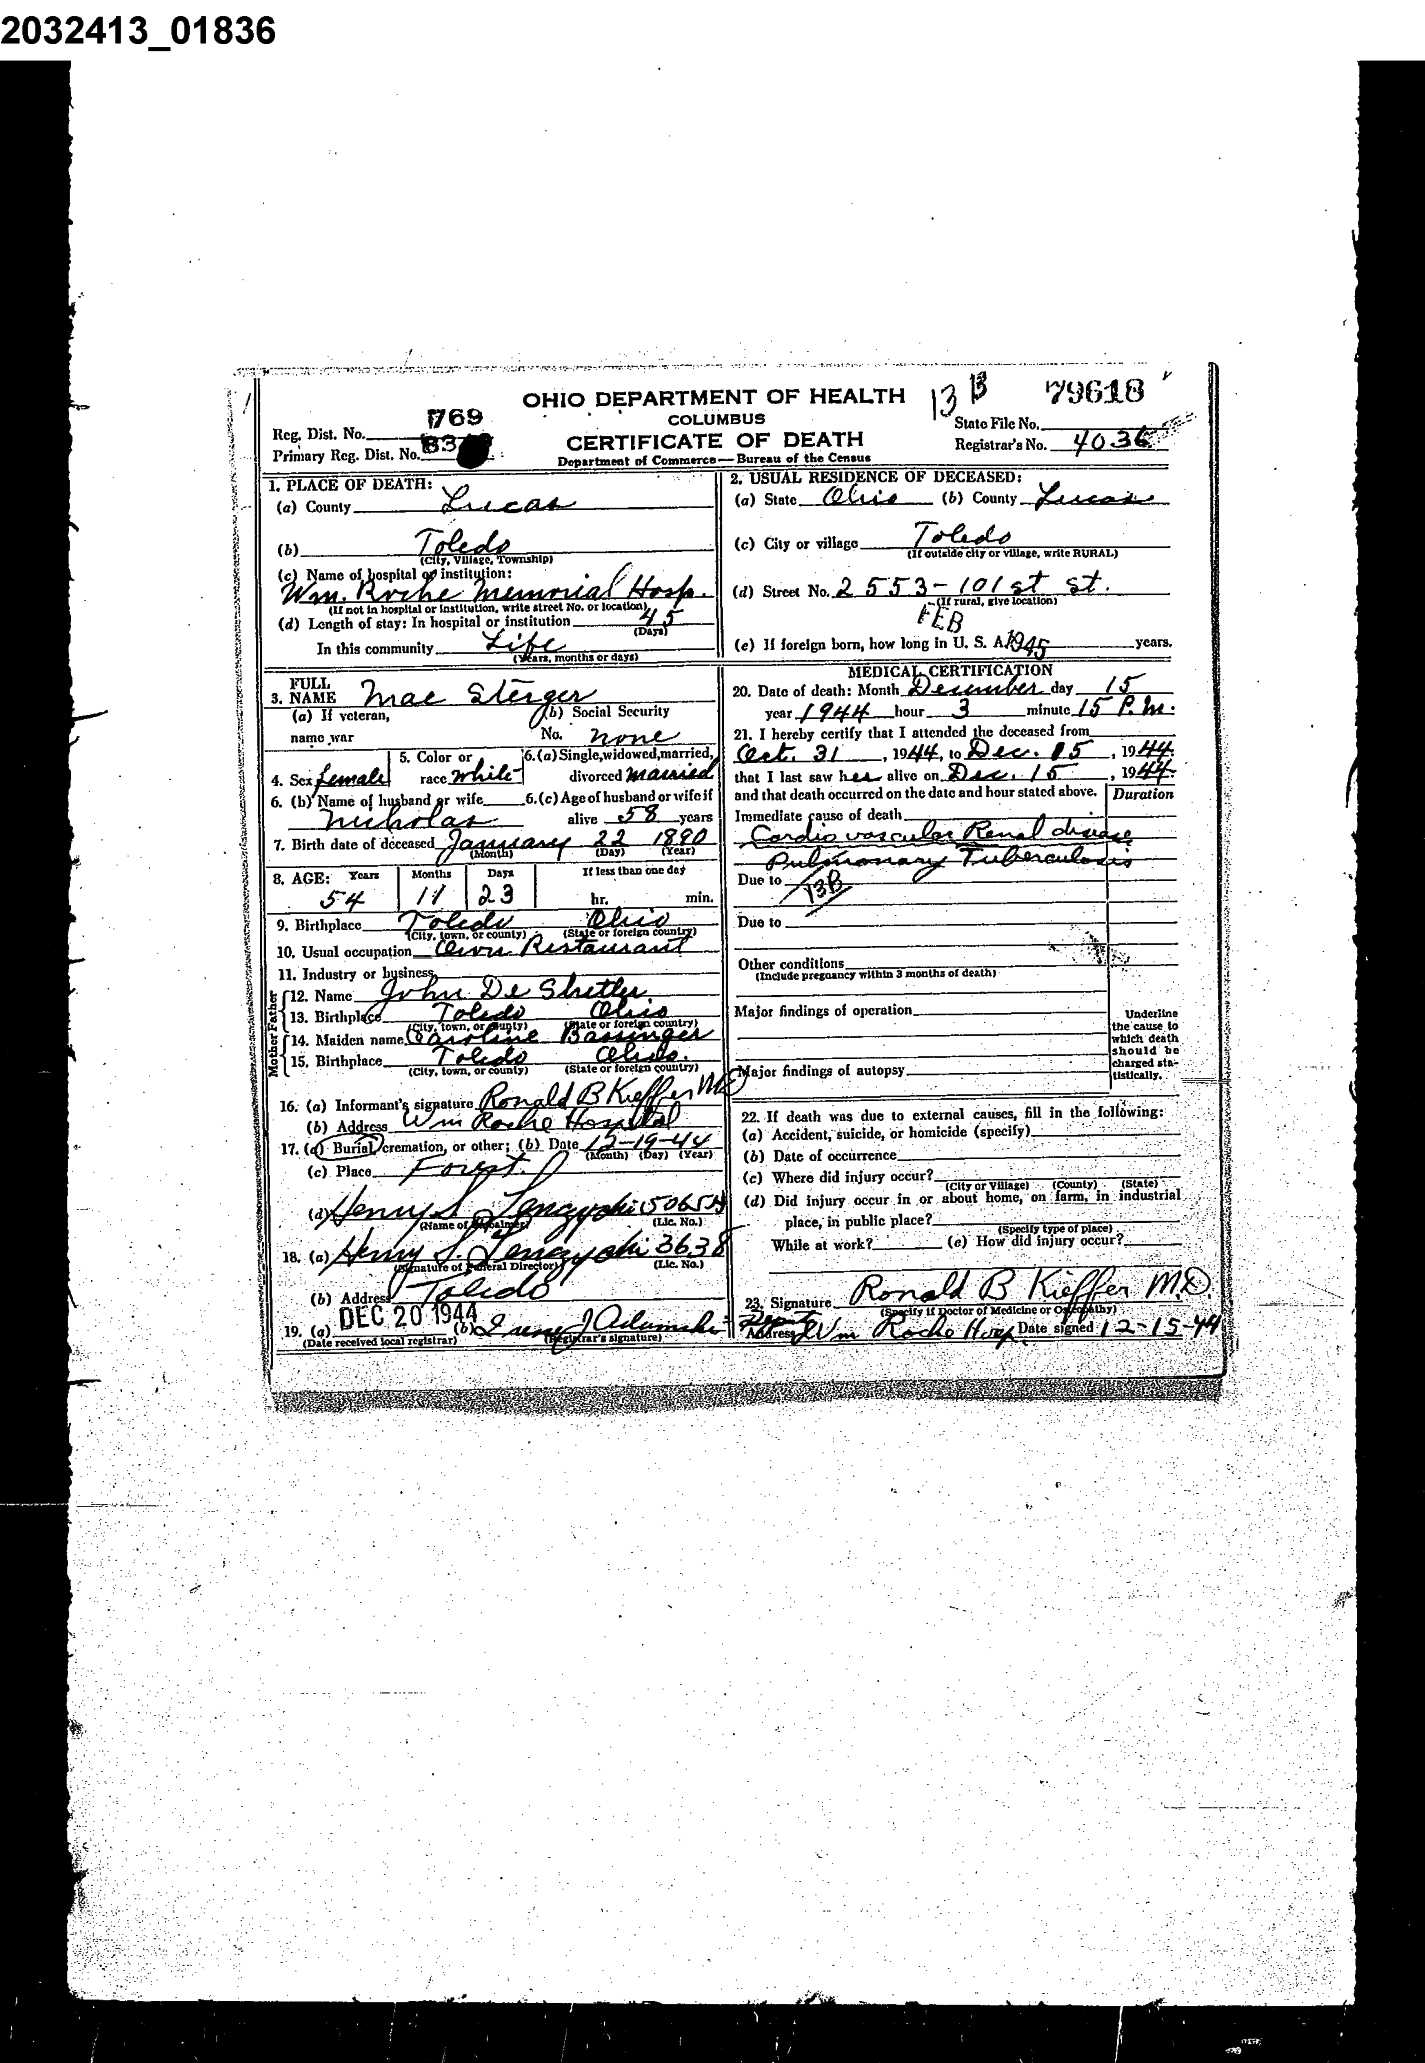 2032413_01836
OHIO DEPARTMENT OF HEALTH
COLUMBUS
CERTIFICATE OF DEATH
Department of Commerce—Bureau of the Census
13 B
79618
Reg. Dist. No. 769
Primary Reg. Dist. No.
State File No.
Registrar's No. 4036
1. PLACE OF DEATH:
(a) County Lucas
(b) Toledo
(City, Village, Township)
(c) Name of hospital or institution:
Wm. Roche Memorial Hosp.
(If not in hospital or institution, write street No. or location)
(d) Length of stay: In hospital or institution 45
(Days)
In this community Life
(Years, months or days)
2. USUAL RESIDENCE OF DECEASED:
(a) State Ohio (b) County Lucas
(c) City or village Toledo
(If outside city or village, write RURAL)
(d) Street No. 2553-101st St.
(If rural, give location)
FEB
(e) If foreign born, how long in U. S. A. 1945 years.
3. FULL NAME Mae Sterger
(a) If veteran, name war
(b) Social Security No. none
4. Sex female
5. Color or race White
6. (a) Single, widowed, married, divorced married
6. (b) Name of husband or wife Nicholas
6. (c) Age of husband or wife if alive 58 years
7. Birth date of deceased January 22 1890
(Month) (Day) (Year)
8. AGE: Years Months Days If less than one day
54 11 23 hr. min.
9. Birthplace Toledo Ohio
(City, town, or county) (State or foreign country)
10. Usual occupation Own Restaurant
11. Industry or business
Father
12. Name John De Shetler
13. Birthplace Toledo Ohio
(City, town, or county) (State or foreign country)
Mother
14. Maiden name Caroline Bassinger
15. Birthplace Toledo Ohio.
(City, town, or county) (State or foreign country)
16. (a) Informant's signature Ronald B Kieffer MD
(b) Address Wm Roche Hospital
17. (a) Burial, cremation, or other; (b) Date 12-19-44
(Month) (Day) (Year)
(c) Place Forest.
(d) Henry S.
(Name of Embalmer) (Lic. No.)
18. (a) Henry S. 3638
(Signature of Funeral Director) (Lic. No.)
(b) Address Toledo
19. (a) DEC 20 1944 (b) Irene J Adamski
(Date received local registrar) (Registrar's signature)
MEDICAL CERTIFICATION
20. Date of death: Month December day 15
year 1944 hour 3 minute 15 P.M.
21. I hereby certify that I attended the deceased from
Oct. 31, 1944, to Dec. 15, 1944.
that I last saw her alive on Dec. 15, 1944.
and that death occurred on the date and hour stated above.
Duration
Immediate cause of death
Cardio vascular Renal disease
Pulmonary Tuberculosis
Due to 13B
Due to
Other conditions
(Include pregnancy within 3 months of death)
Major findings of operation
Major findings of autopsy
Underline the cause to which death should be charged statistically.
22. If death was due to external causes, fill in the following:
(a) Accident, suicide, or homicide (specify)
(b) Date of occurrence
(c) Where did injury occur?
(City or Village) (County) (State)
(d) Did injury occur in or about home, on farm, in industrial
place, in public place?
(Specify type of place)
While at work? (e) How did injury occur?
23. Signature Ronald B Kieffer M.D.
(Specify if Doctor of Medicine or Osteopathy)
Deputy
Address Wm Roche Hosp. Date signed 12-15-44